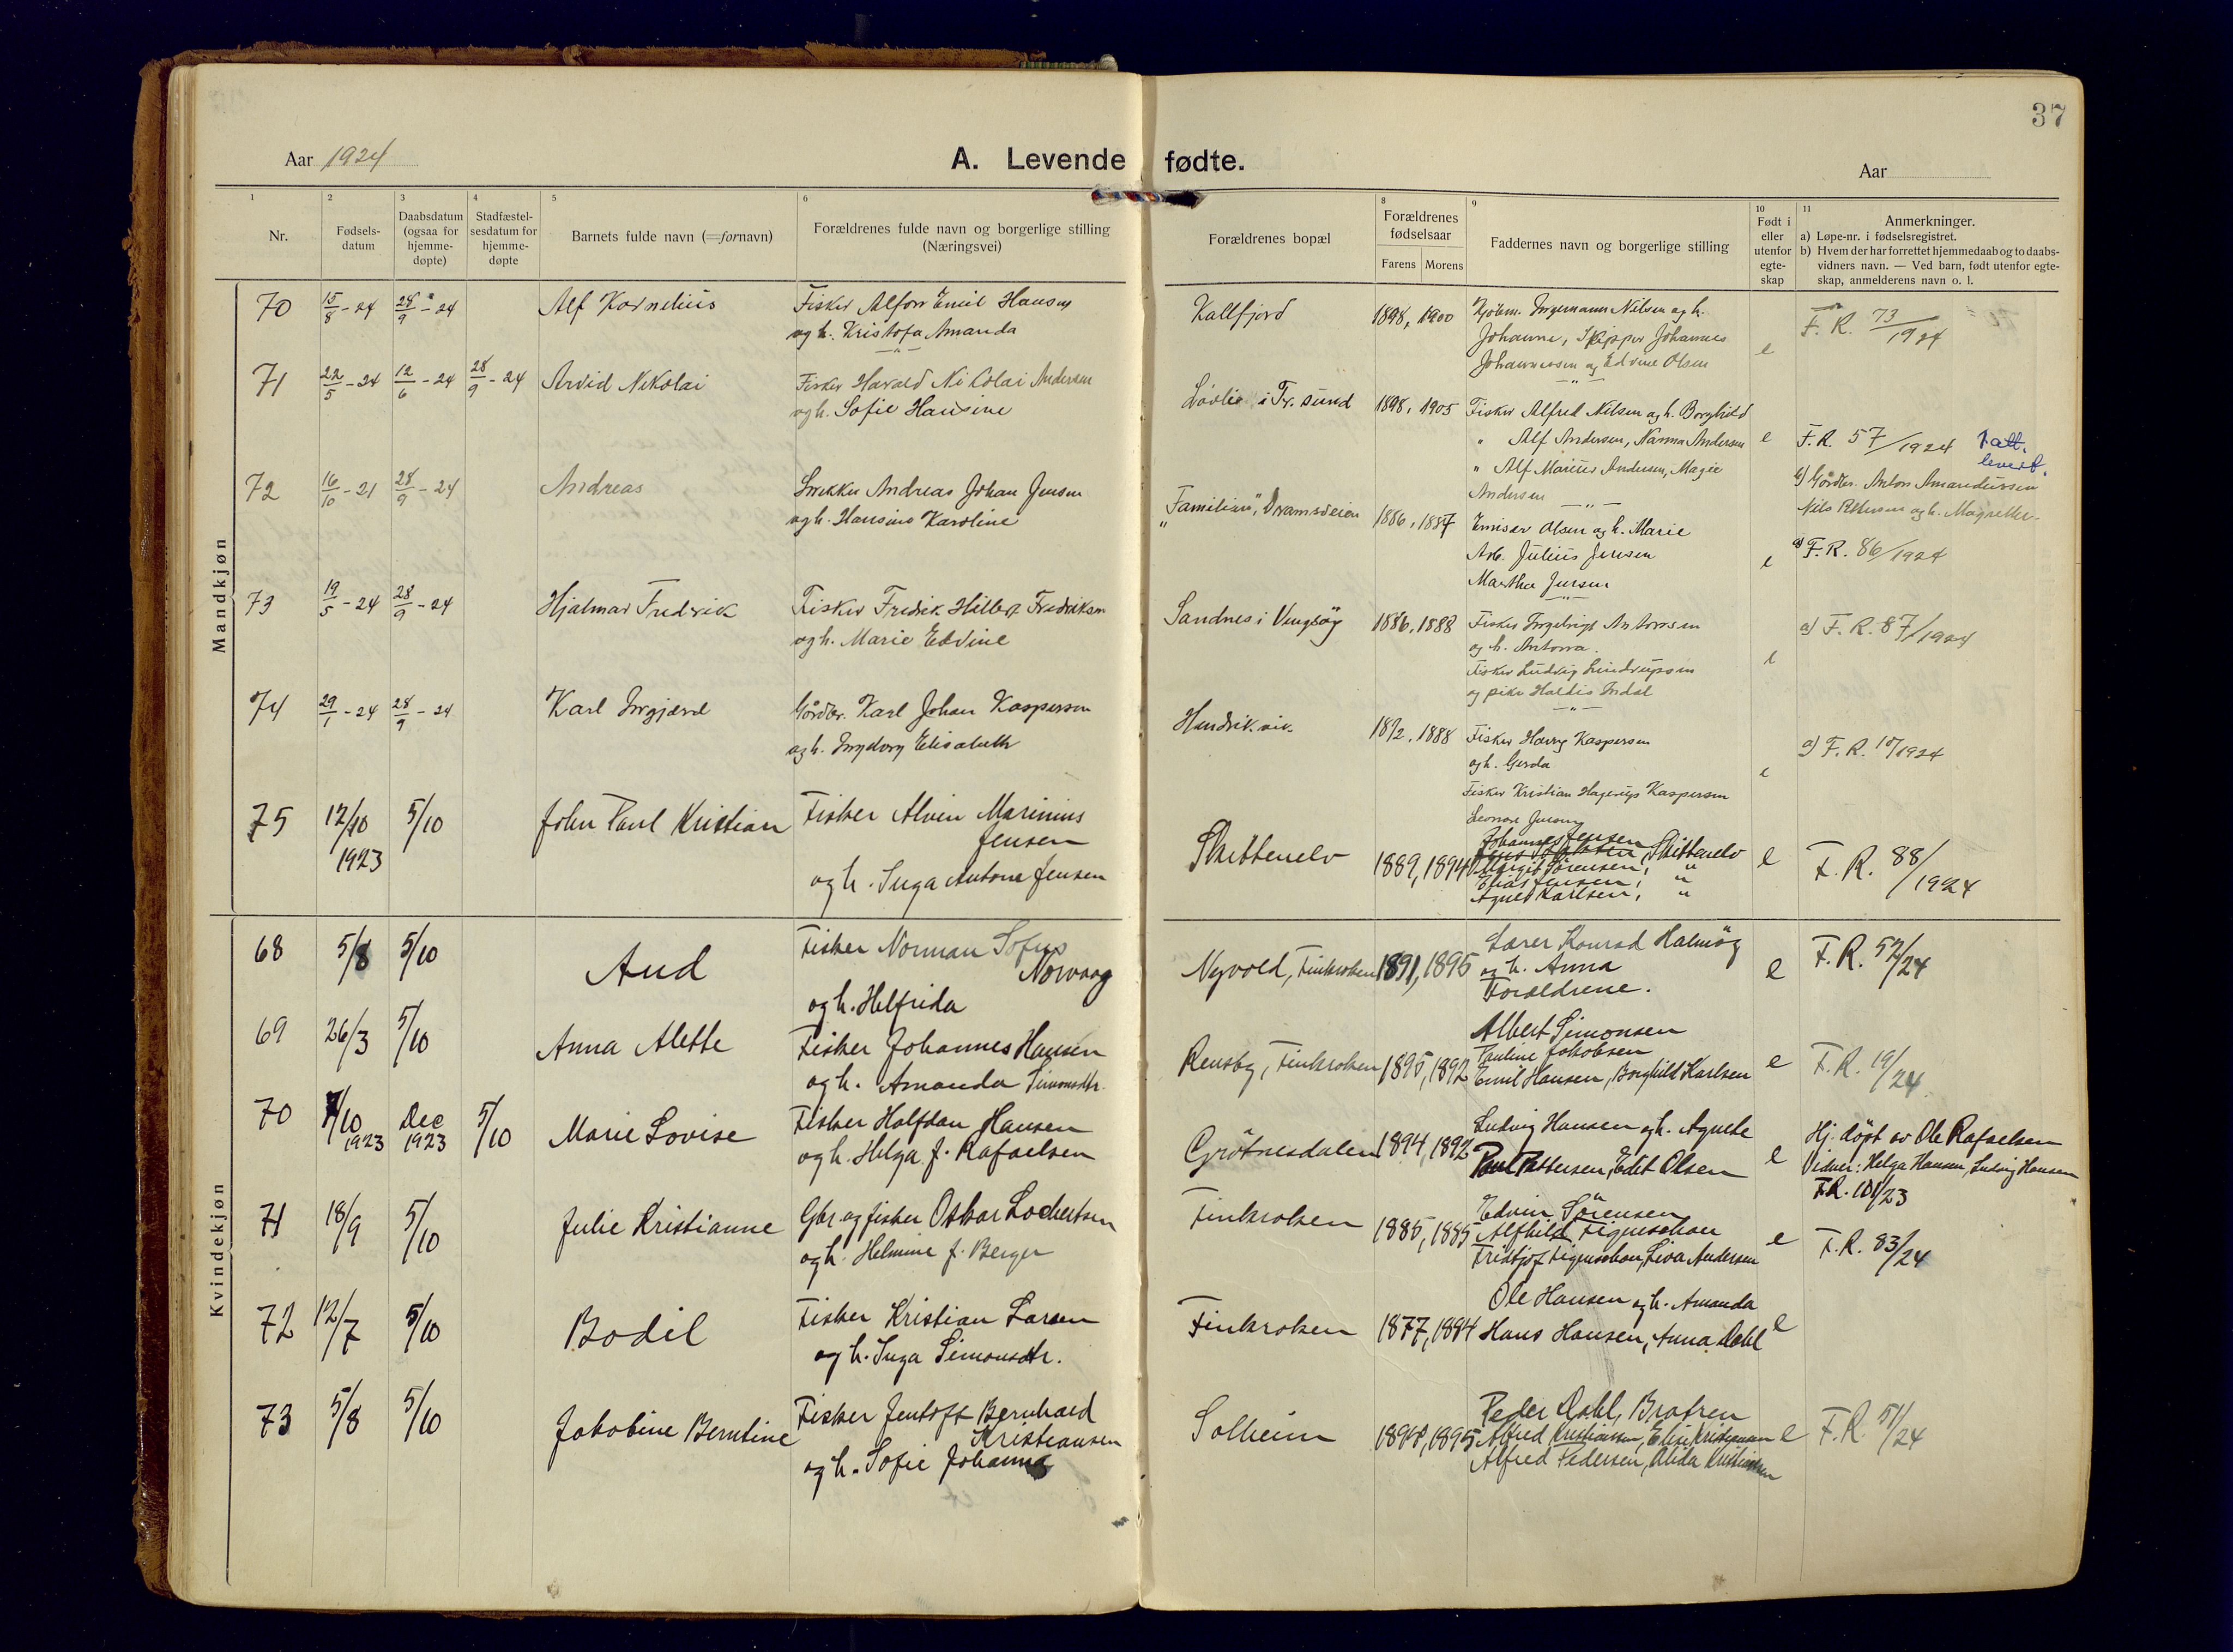 37
Aar 1924
A. Levende fødte.
Aar
1 2 3 4 5 6 8 9 10 11
Nr.
Fødsels-
datum
Daabsdatum
(ogsaa for
hjemme-
døpte)
Stadfæstel-
sesdatum for
hjemme-
døpte
Barnets fulde navn (=fornavn)
Forældrenes fulde navn og borgerlige stilling
(Næringsvei)
Forældrenes bopæl
Forældrenes
fødselsaar
Farens Morens
Faddernes navn og borgerlige stilling
Født i
eller
utenfor
egte-
skap
Anmerkninger.
a) Løpe-nr. i fødselsregistret.
b) Hvem der har forrettet hjemmedaab og to daabs-
vidners navn. — Ved barn, født utenfor egte-
skap, anmelderens navn o. l.
Mandkjøn
70 15/8 - 24 28/9 - 24 Alf Kornelius
Fisker Alfon Emil Hansen
og h. Kristofa Amanda
Kallfjord 1898, 1900
Kjøbm. Ingemann Nilsen og h.
Johanna, Skipper Johannes
Johannessen og Edvine Olsen
e
F. R. 73/1924
71 22/5 - 24 12/6 - 24 28/9 - 24 Arvid Nikolai
Fisker Harald Nikolai Andersen
og h. Sofie Hansine
Løvlie i Tr. sund 1898, 1905
Fisker Alfred Nilsen og h. Borghild
" Alf Andersen, Nanna Andersen
" Alf Marius Andersen, Magie
Andersen
e
F. R. 57/1924 1 att.
levert.
72 16/10 - 21 28/9 - 24 Andreas
Snekker Andreas Johan Jensen
og h. Hansine Karoline
"Familien", Dramsveien 1886, 1887
Emisær Olsen og h. Marie
Arb. Julius Jensen
Martha Jensen
e
b) Gårdbr. Anton Amandussen
Nils Petersen og h. Magrethe.
a) F. R. 86/1924
73 19/5 - 24 28/9 - 24 Hjalmar Fredrik
Fisker Fredrik Hilbert Fredriksen
og h. Marie Edvine
Sandnes i Vengsøy 1886, 1888
Fisker Ingebrigt Antonsen
og h. Antona.
Fisker Ludvig Lindrupsen
og pike Haldis Indal
e
a) F. R. 87/1924
74 29/1 - 24 28/9 - 24 Karl Ingjærd
Gårdbr. Karl Johan Kaspersen
og h. Ingeborg Elisabeth
Hendrikvik. 1872, 1888
Fisker Harry Kaspersen
og h. Gerda
Fisker Kristian Hagerup Kaspersen
Leonore Jensen
e
a) F. R. 10/1924
75 12/10 1923 5/10 John Paul Kristian
Fisker Alvin Marinius
Jensen
og h. Inga Antona Jensen
Skittenelv 1889, 1894
Johannes Jensen
Skittenelv
Margit Sørensen, "
Elias Jensen, "
Agnes Karlsen, "
e
F. R. 88/1924
Kvindekjøn
68 5/8 5/10 Aud
Fisker Norman Sofus
Norvaag
og h. Helfrida
Nyvold, Finkroken 1891, 1895
Lærer Konrad Halmøy
og h. Anna
Forældrene.
e
F. R. 52/24
69 26/3 5/10 Anna Alette
Fisker Johannes Hansen
og h. Amanda Simonsdtr.
Rensby, Finkroken 1895, 1892
Albert Simonsen
Pauline Jakobsen
Emil Hansen, Borghild Karlsen
e
F. R. 19/24
70 7/10 1923 Dec 1923 5/10 Marie Lovise
Fisker Halfdan Hansen
og h. Helga f. Rafaelsen
Grøtnesdalen 1894, 1892
Ludvig Hansen og h. Agnete
Paul Pettersen, Edit Olsen
e
Hj. døpt av Ole Rafaelsen
Vidner: Helga Hansen, Ludvig Hansen
F.R. 101/23
71 18/9 5/10 Julie Kristianne
Gbr. og fisker Oskar Lockertsen
og h. Helmine f. Berger
Finkroken 1885, 1885
Edvin Sørensen
Alfhild Figenschau
Fridtjof Figenschau, Liva Andersen
e
F. R. 83/24
72 12/7 5/10 Bodil
Fisker Kristian Larsen
og h. Inga Simonsdtr.
Finkroken 1877, 1884
Ole Hansen og h. Amanda
Hans Hansen, Anna Dahl
e
73 5/8 5/10 Jakobine Berntine
Fisker Jentoft Bernhard
Kristiansen
og h. Sofie Johanna
Solheim 1898, 1895
Peder Dahl, Bratren
Alfred Kristiansen, Elise Kristiansen
Alfred Pedersen, Alida Kristiansen
e
F. R. 51/24